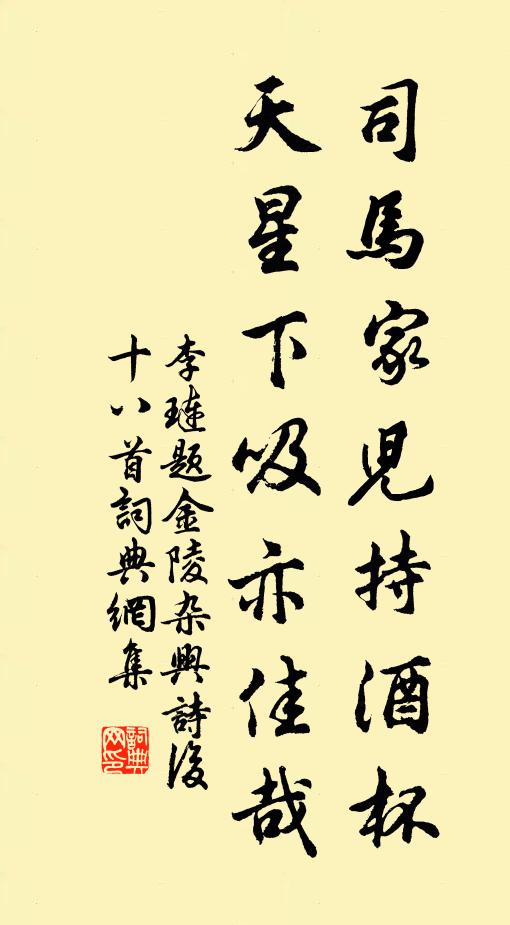 司馬家児持酒杯
天星下吸亦佳哉
李璉題金陵杂興詩後
十八首詞典網集
詞典网印